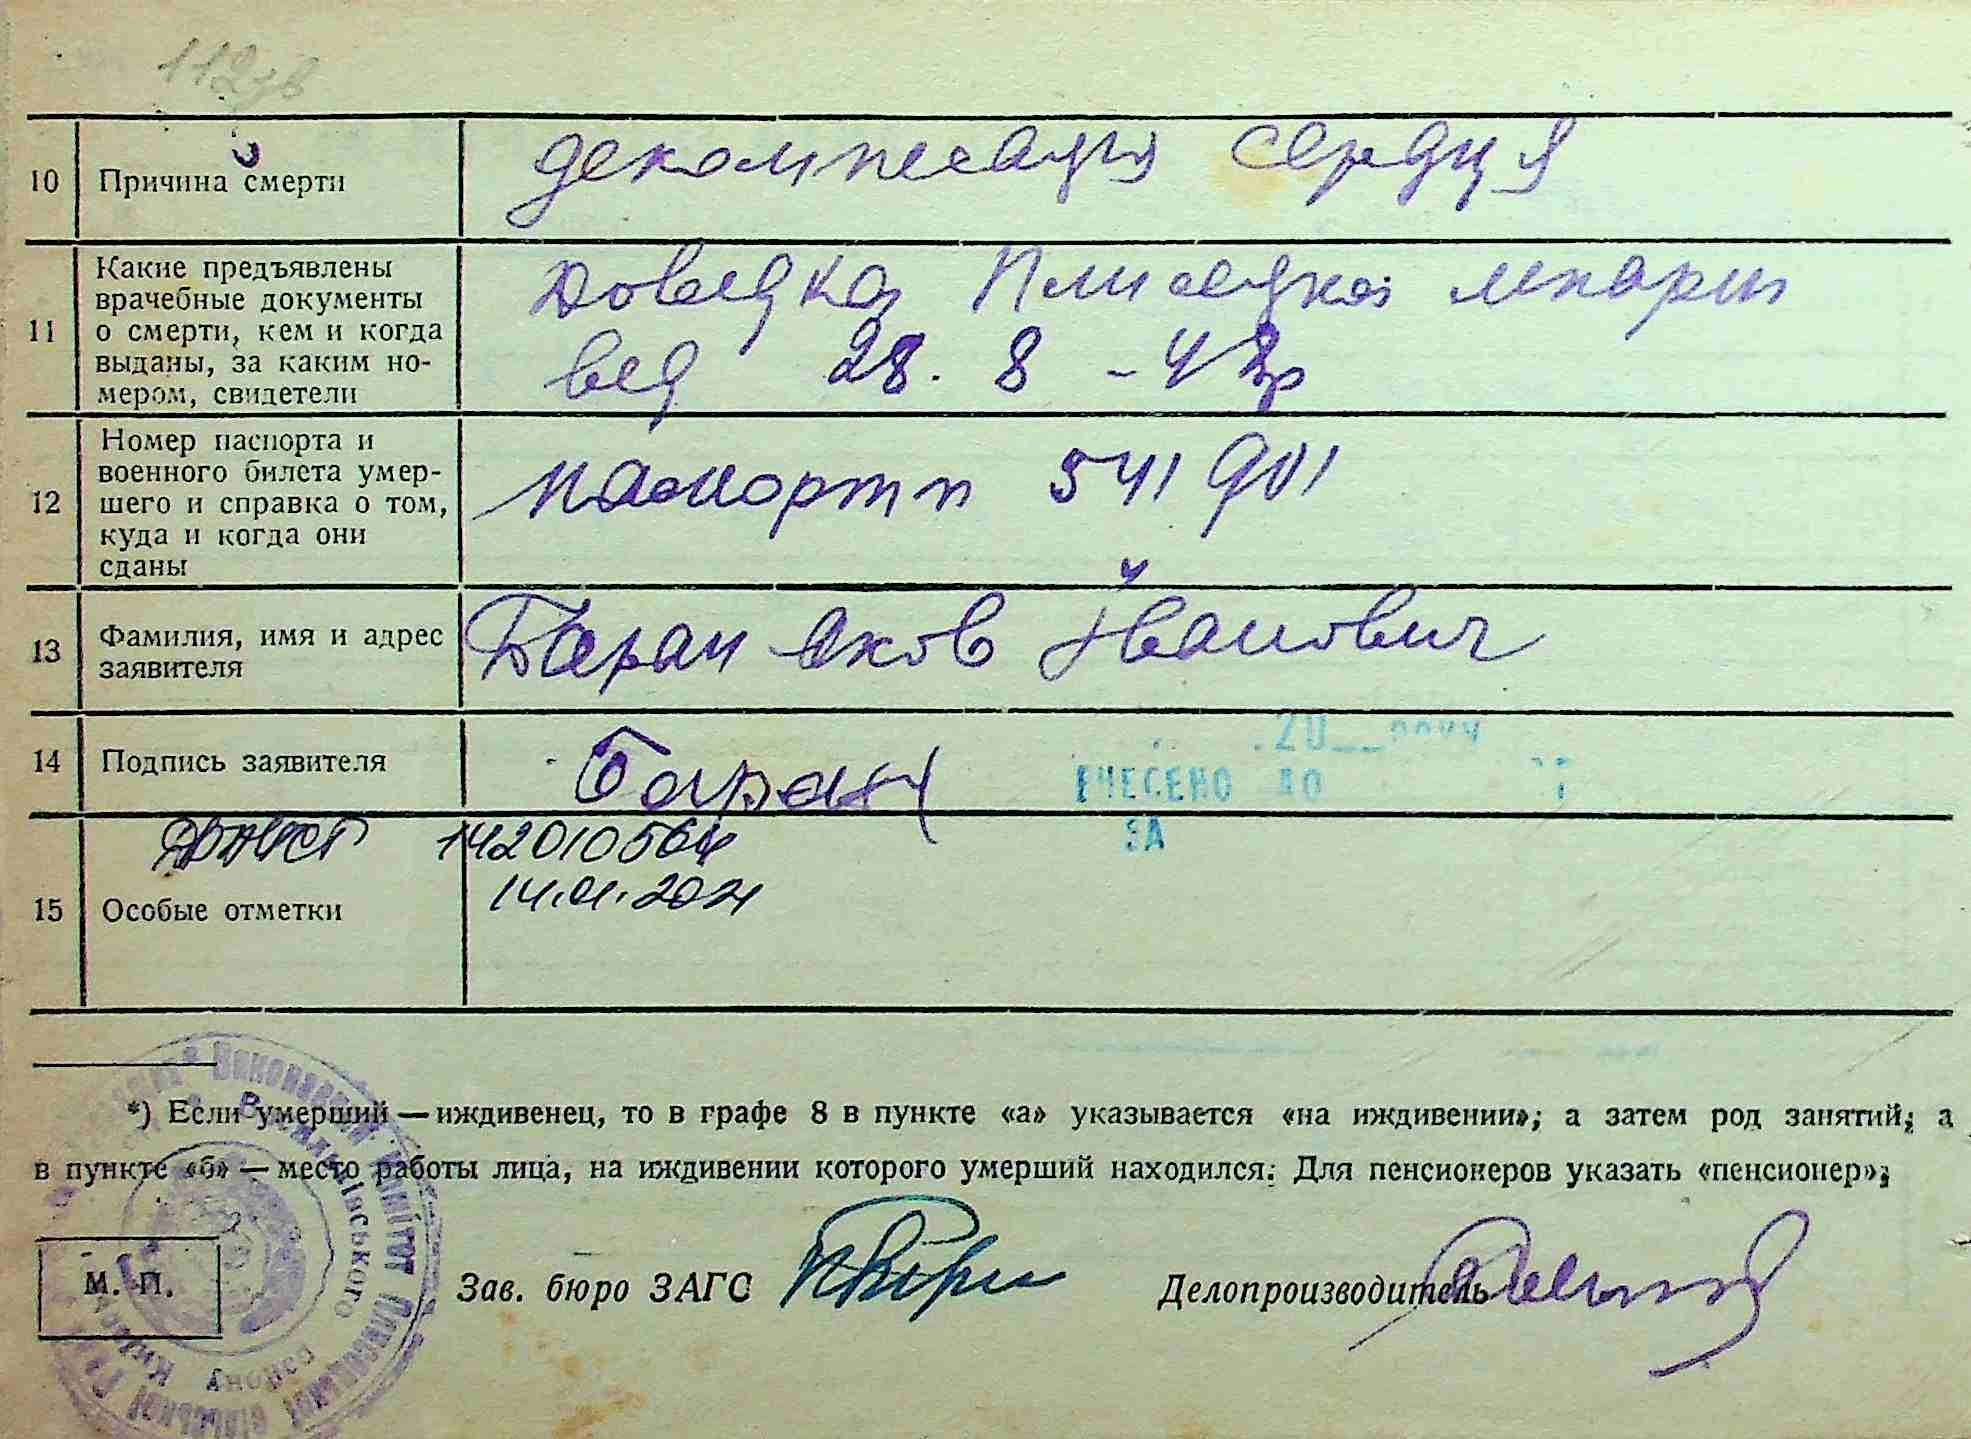 112зв
10 Причина смерти декомпесация сердця
11 Какие предъявлены врачебные документы о смерти, кем и когда выданы, за каким номером, свидетели
Доведка Плисецкой лікарні
вед 28. 8 - 4
12 Номер паспорта и военного билета умершего и справка о том, куда и когда они сданы
паспорт 541901
13 Фамилия, имя и адрес заявителя Баран Яков Іванович
14 Подпись заявителя Баран
20__ року
ВНЕСЕНО ДО
ЗА
15 Особые отметки
142010564
14.01.2021
*) Если умерший — иждивенец, то в графе 8 в пункте «а» указывается «на иждивении»; а затем род занятий; а
в пункте «б» — место работы лица, на иждивении которого умерший находился. Для пенсионеров указать «пенсионер»;
М. П.
Зав. бюро ЗАГС
Делопроизводитель
Виконавчий комітет Плисецької сільської
Васильківського району Київської